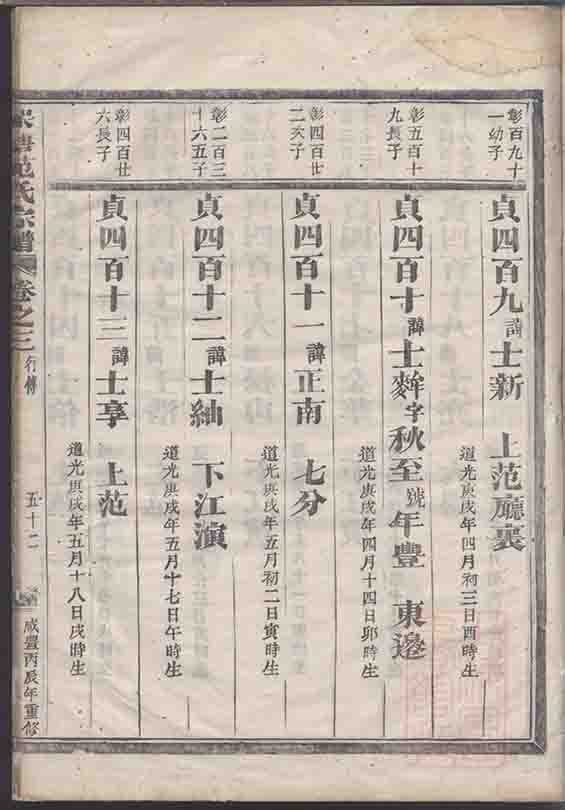 彰百九十
一幼子
貞四百九諱士新 上范廳裏
道光庚戌年四月初三日酉時生
彰五百十
九長子
貞四百十諱士麰字秋至號年豐 東邊
道光庚戌年四月十四日卯時生
彰四百廿
二次子
貞四百十一諱正南 七分
道光庚戌年五月初二日寅時生
彰二百三
十六五子
貞四百十二諱士紬 下江演
道光庚戌年五月十七日午時生
彰四百廿
六長子
貞四百十三諱士享 上范
道光庚戌年五月十八日戌時生
范氏宗譜 卷之三 行傳 五十二 咸豐丙辰年重修